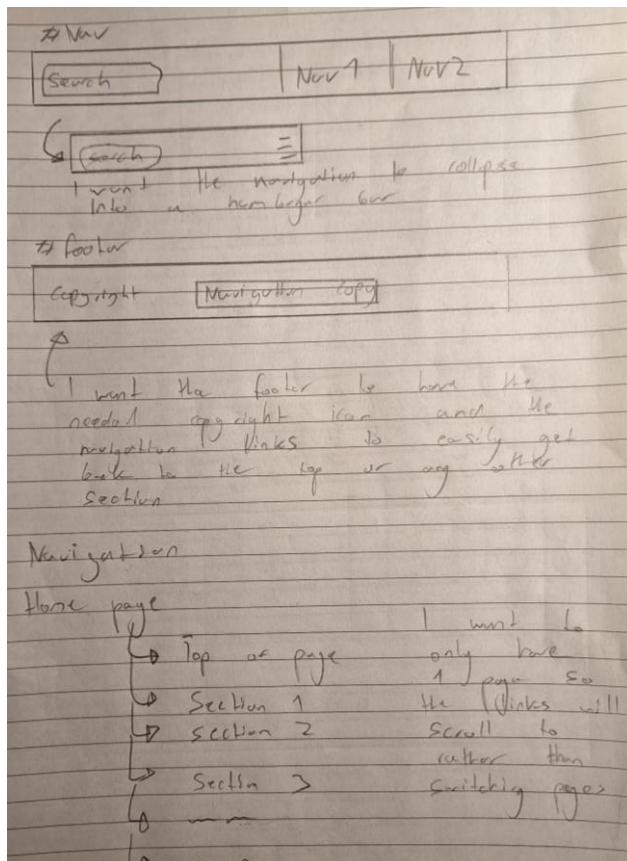 # Nav
Search Nav 1 Nav 2
Search
I want the navigation to collapse
into a hamburger bar
# footer
Copyright Navigation copy
I want the footer to have the
needed copyright icon and the
navigation links to easily get
back to the top or any other
section
Navigation
Home page
I want to
Top of page only have
1 page so
Section 1 the links will
section 2 scroll to
rather than
Section 3 switching pages